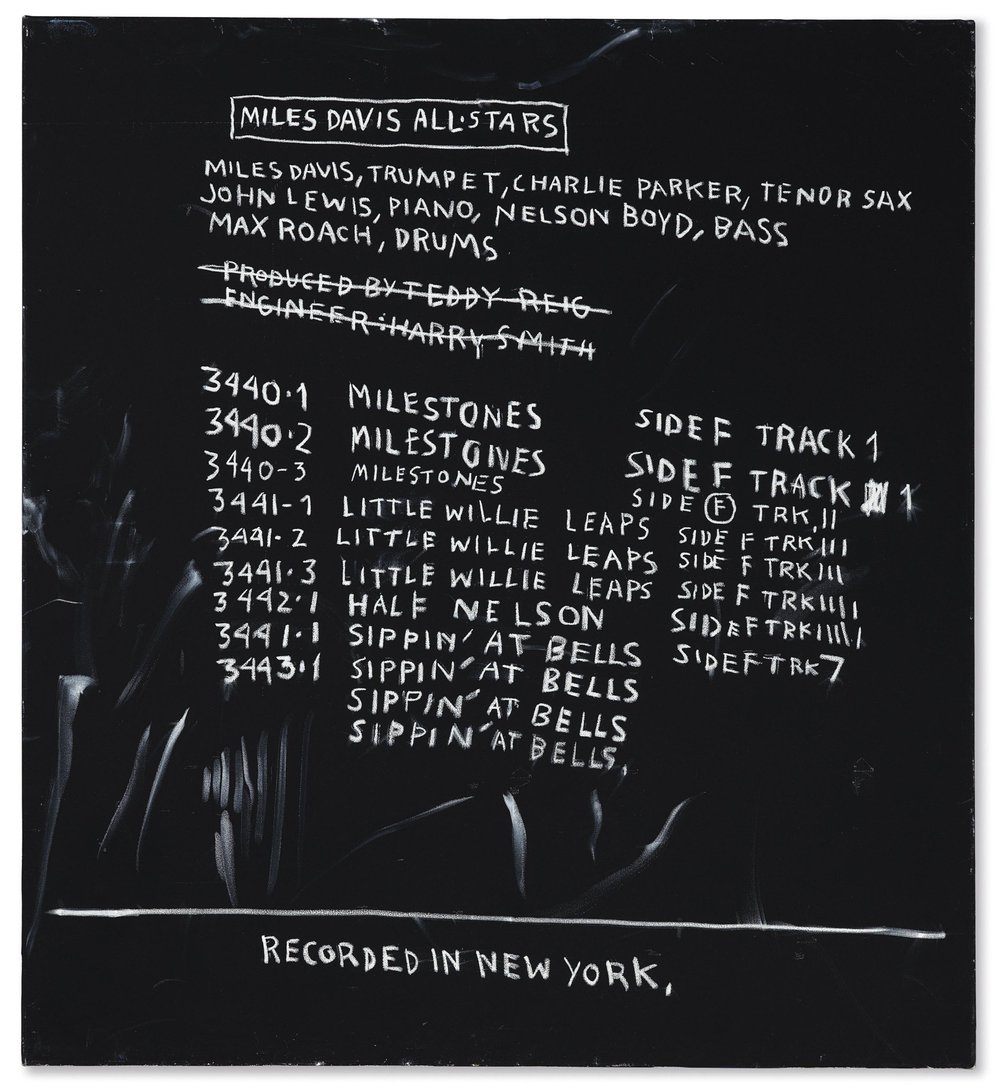 MILES DAVIS ALL·STARS
MILES DAVIS, TRUMPET, CHARLIE PARKER, TENOR SAX
JOHN LEWIS, PIANO, NELSON BOYD, BASS
MAX ROACH, DRUMS
PRODUCED BY TEDDY REIG
ENGINEER: HARRY SMITH
3440·1 MILESTONES SIDE F TRACK 1
3440·2 MILESTONES SIDE F TRACK 1
3440-3 MILESTONES SIDE F TRK, II
3441-1 LITTLE WILLIE LEAPS SIDE F TRK III
3441-2 LITTLE WILLIE LEAPS SIDE F TRK III
3441·3 LITTLE WILLIE LEAPS SIDE F TRK IIII
3442·1 HALF NELSON SIDE F TRK IIIII
3441·1 SIPPIN' AT BELLS SIDE F TRK 7
3443·1 SIPPIN' AT BELLS
SIPPIN' AT BELLS
SIPPIN' AT BELLS,
RECORDED IN NEW YORK,